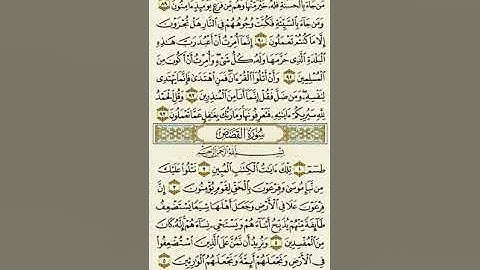 مَن جَآءَ بِٱلْحَسَنَةِ فَلَهُۥ خَيْرٌ مِّنْهَا وَهُم مِّن فَزَعٍ يَوْمَئِذٍ ءَامِنُونَ ٨٩
وَمَن جَآءَ بِٱلسَّيِّئَةِ فَكُبَّتْ وُجُوهُهُمْ فِى ٱلنَّارِ هَلْ تُجْزَوْنَ
إِلَّا مَا كُنتُمْ تَعْمَلُونَ ٩٠ إِنَّمَآ أُمِرْتُ أَنْ أَعْبُدَ رَبَّ هَٰذِهِ
ٱلْبَلْدَةِ ٱلَّذِى حَرَّمَهَا وَلَهُۥ كُلُّ شَىْءٍ وَأُمِرْتُ أَنْ أَكُونَ مِنَ
ٱلْمُسْلِمِينَ ٩١ وَأَنْ أَتْلُوَا۟ ٱلْقُرْءَانَ فَمَنِ ٱهْتَدَىٰ فَإِنَّمَا يَهْتَدِى
لِنَفْسِهِۦ وَمَن ضَلَّ فَقُلْ إِنَّمَآ أَنَا۠ مِنَ ٱلْمُنذِرِينَ ٩٢ وَقُلِ ٱلْحَمْدُ
لِلَّهِ سَيُرِيكُمْ ءَايَٰتِهِۦ فَتَعْرِفُونَهَا وَمَا رَبُّكَ بِغَٰفِلٍ عَمَّا تَعْمَلُونَ ٩٣
سُورَةُ ٱلْقَصَصِ
بِسْمِ ٱللَّهِ ٱلرَّحْمَٰنِ ٱلرَّحِيمِ
طسٓمٓ ١ تِلْكَ ءَايَٰتُ ٱلْكِتَٰبِ ٱلْمُبِينِ ٢ نَتْلُوا۟ عَلَيْكَ
مِن نَّبَإِ مُوسَىٰ وَفِرْعَوْنَ بِٱلْحَقِّ لِقَوْمٍ يُؤْمِنُونَ ٣ إِنَّ
فِرْعَوْنَ عَلَا فِى ٱلْأَرْضِ وَجَعَلَ أَهْلَهَا شِيَعًا يَسْتَضْعِفُ
طَآئِفَةً مِّنْهُمْ يُذَبِّحُ أَبْنَآءَهُمْ وَيَسْتَحْىِۦ نِسَآءَهُمْ إِنَّهُۥ كَانَ
مِنَ ٱلْمُفْسِدِينَ ٤ وَنُرِيدُ أَن نَّمُنَّ عَلَى ٱلَّذِينَ ٱسْتُضْعِفُوا۟
فِى ٱلْأَرْضِ وَنَجْعَلَهُمْ أَئِمَّةً وَنَجْعَلَهُمُ ٱلْوَٰرِثِينَ ٥